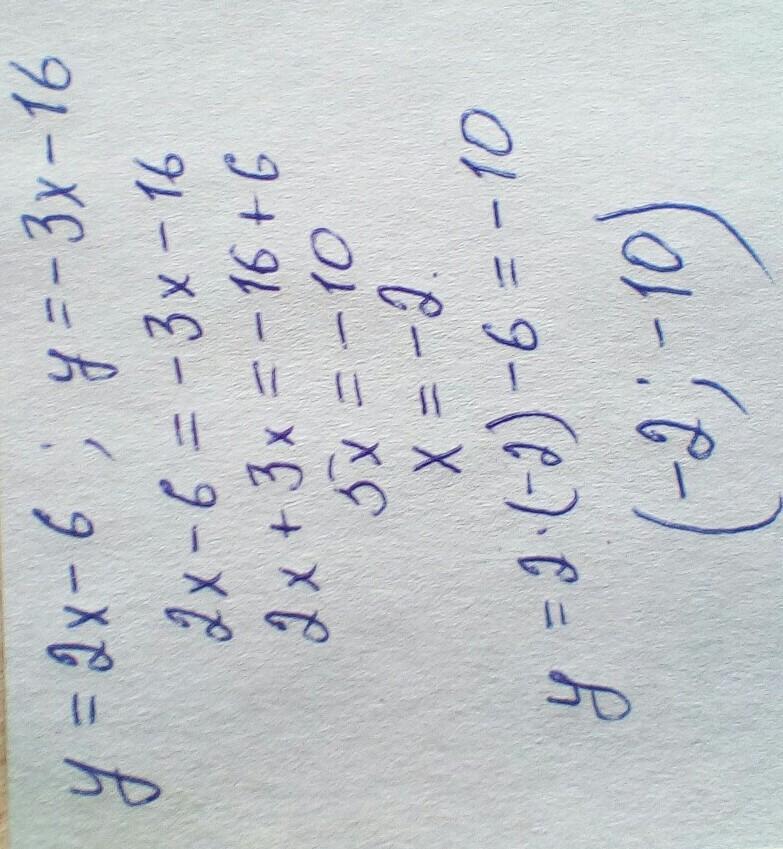 y = 2x - 6 ; y = - 3x - 16
2x - 6 = - 3x - 16
2x + 3x = - 16 + 6
5x = - 10
x = - 2.
y = 2·(-2) - 6 = - 10
(-2; - 10)